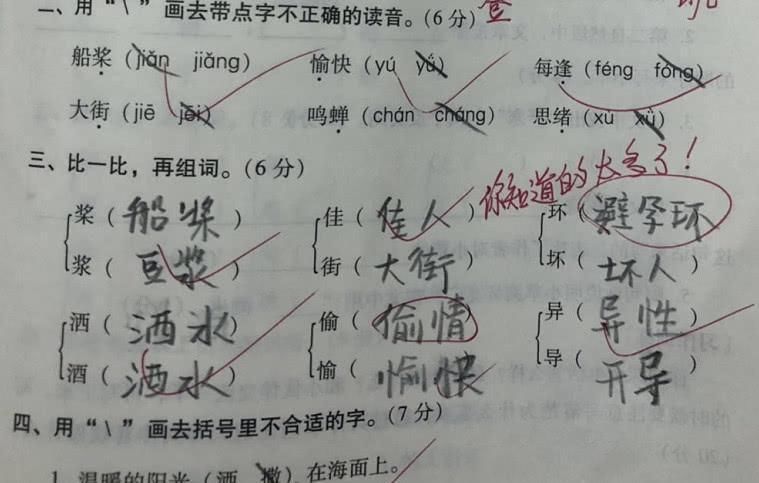 二、用“\”画去带点字不正确的读音。(6分)
船桨(jiān jiǎng) 愉快(yú yǔ) 每逢(féng fōng)
大街(jiē jēi) 鸣蝉(chán cháng) 思绪(xu xǜ)
你知道的太多了!
三、比一比，再组词。(6分)
桨(船桨) 佳(佳人) 环(避孕环)
浆(豆浆) 街(大街) 坏(坏人)
洒(洒水) 偷(偷情) 异(异性)
酒(酒水) 愉(愉快) 导(开导)
四、用“\”画去括号里不合适的字。(7分)
1.温暖的阳光(洒 撒)在海面上。